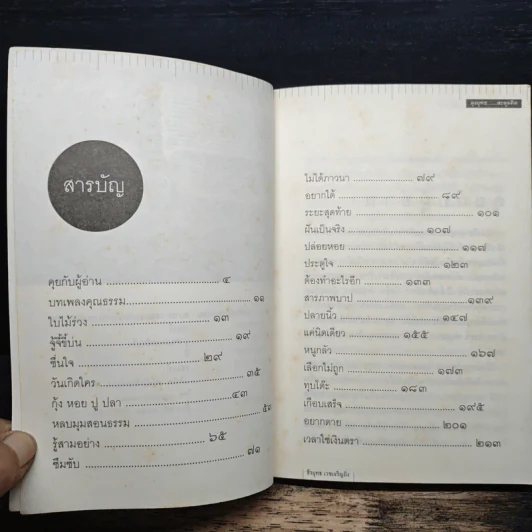 สารบัญ
คุยกับผู้อ่าน ๔
บทเพลงคุณธรรม ๑๑
ใบไม้ร่วง ๑๓
รู้จี้ขี้บ่น ๑๙
ชื่นใจ ๒๙
วันเกิดใคร ๓๕
กุ้ง หอย ปู ปลา ๔๓
หลบมุมสอนธรรม
รู้สามอย่าง ๖๕
ซึมซับ ๗๑
ไม่ได้ภาวนา ๗๙
อยากได้ ๘๙
ระยะสุดท้าย ๑๐๑
ฝันเป็นจริง ๑๐๗
ปล่อยหอย ๑๑๗
ประตูใจ ๑๒๓
ต้องทำอะไรอีก ๑๓๓
สารภาพบาป ๑๓๙
ปลายนิ้ว ๑๔๗
แค่นิดเดียว ๑๕๕
หนูกลัว ๑๖๗
เลือกไม่ถูก ๑๗๓
ทุบโต๊ะ ๑๘๓
เกือบเสร็จ ๑๙๕
อยากตาย ๒๐๑
เวลาใช้เงินตรา ๒๑๓